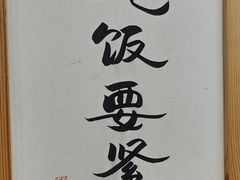 饭要紧